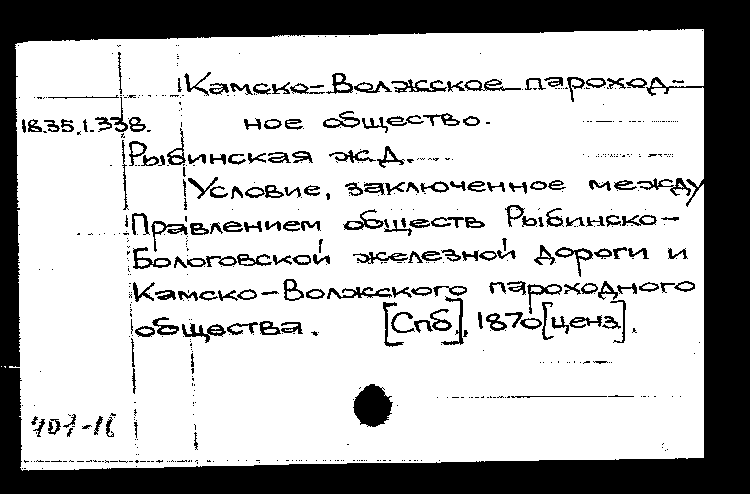 Камско-Волжское пароход-
18.35.1.338. ное общество.
Рыбинская ж.д.
Условие, заключенное между
Правлением обществ Рыбинско-
Бологовской железной дороги и
Камско-Волжского пароходного
общества. [Спб.], 1870 [ценз].
407-16